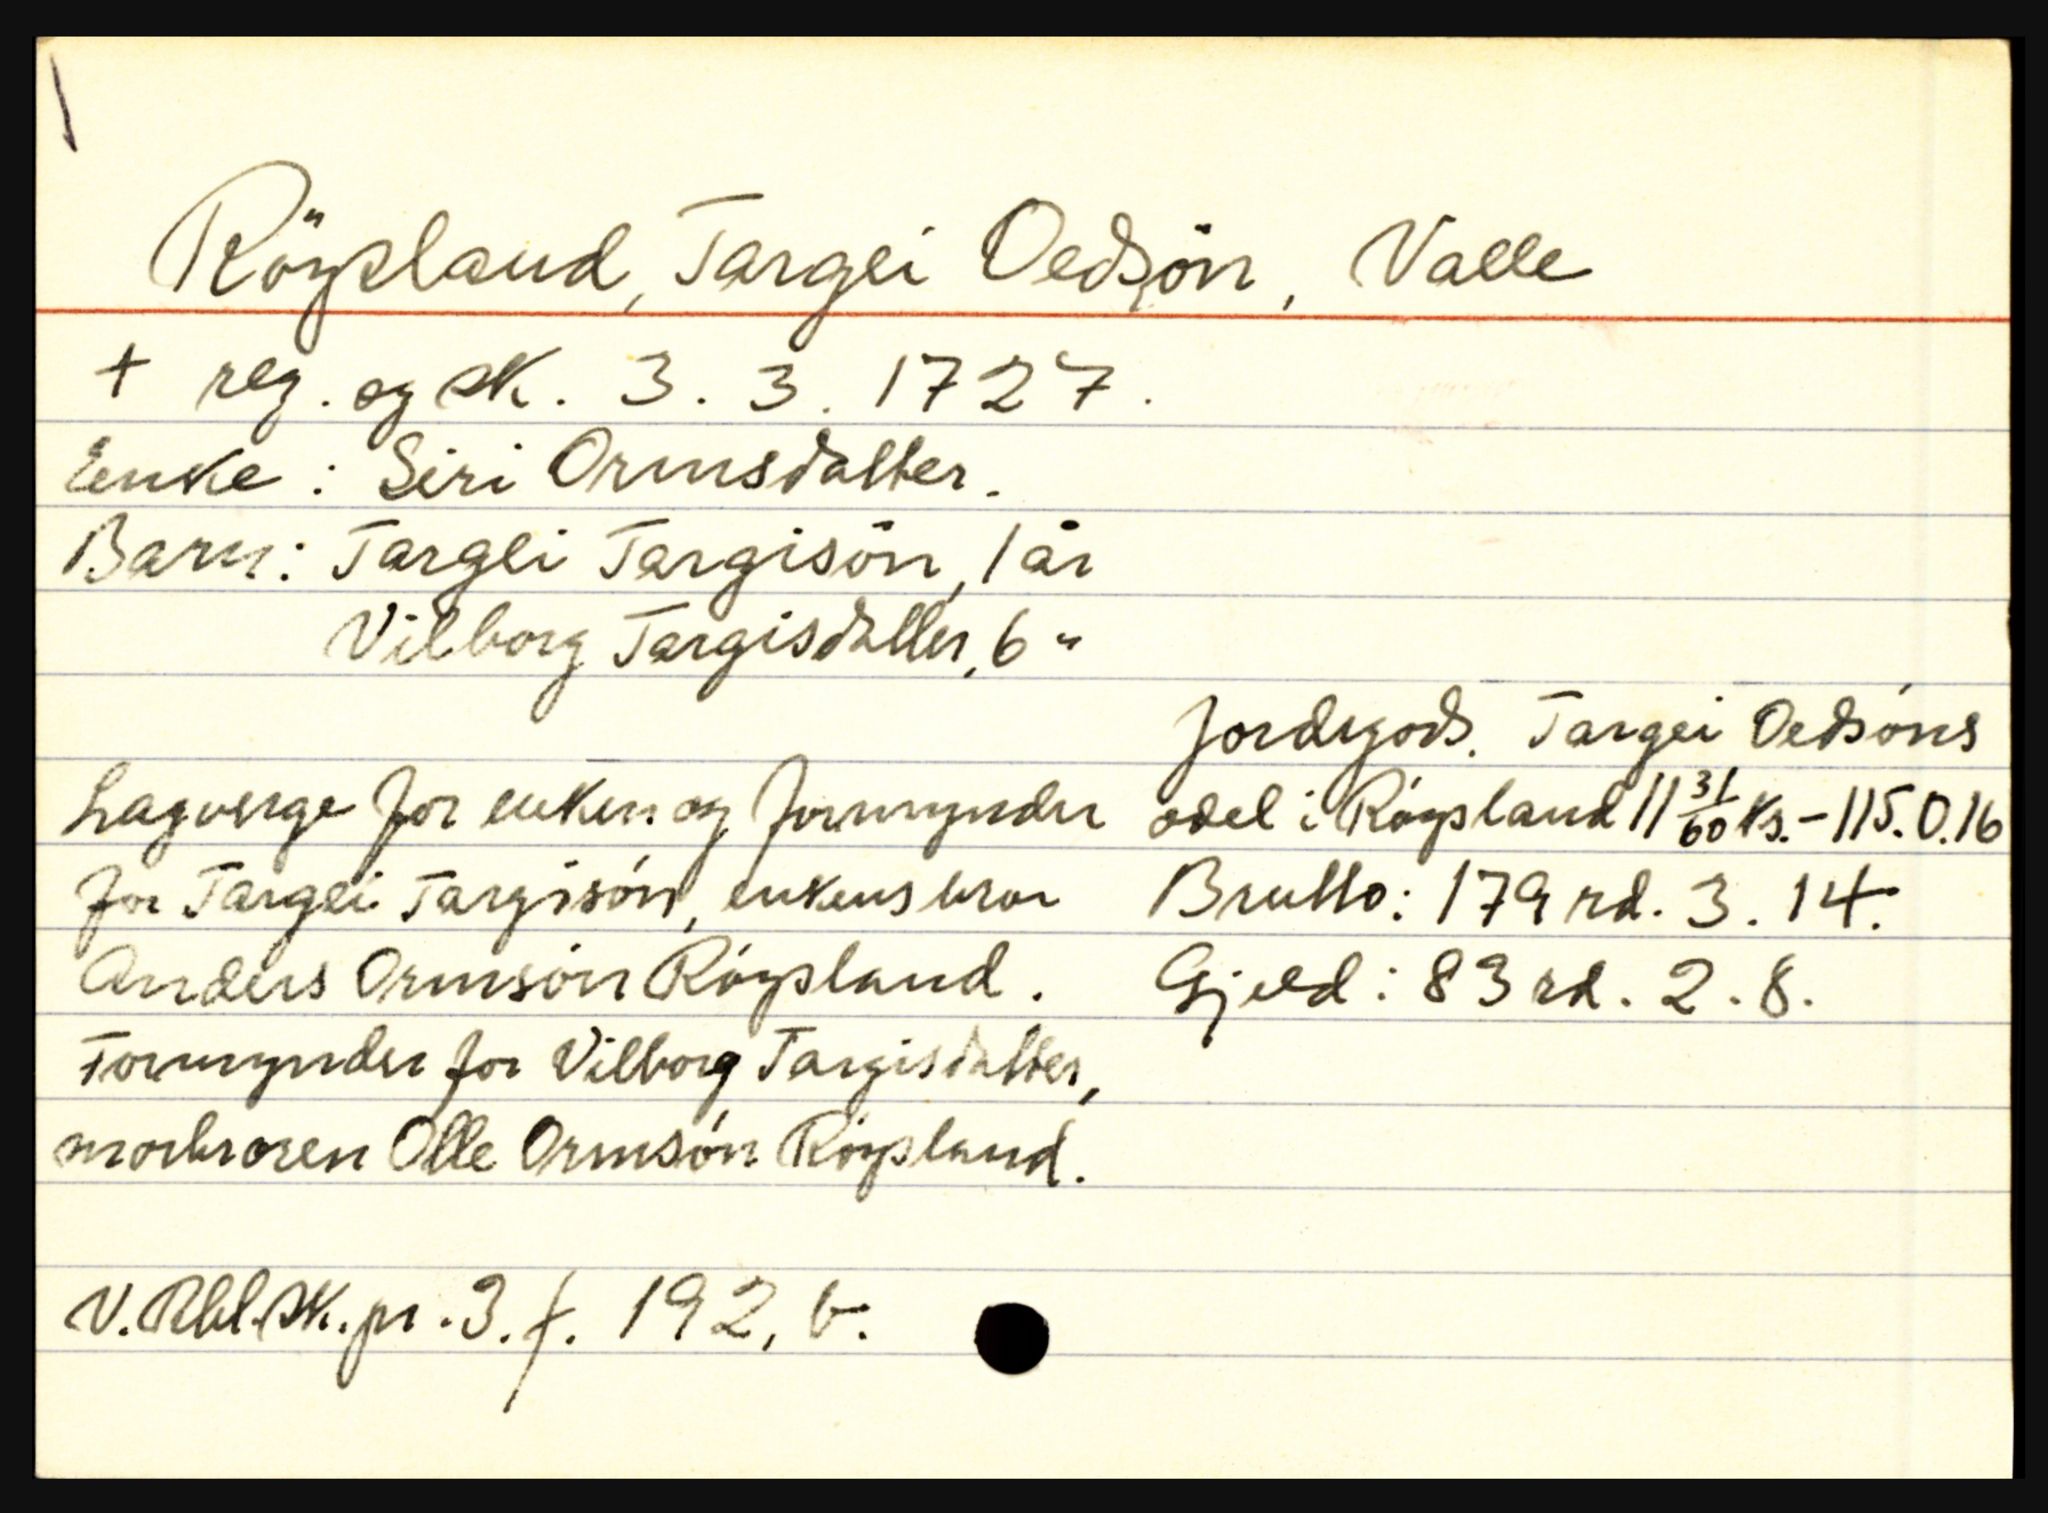 Röysland, Targei Oedsön, Valle
+ reg. og sk. 3. 3. 1727.
Enke: Siri Ormsdatter.
Barn: Targei Targisön, 1 år
Vilborg Targisdatter, 6 "
Lagverge for enken og formynder
for Targei Targisón, enkens bror
Anders Ormsón Röysland.
Formynder for Vilborg Targisdatter,
morbroren Olle Ormsón Röysland.
Jordegods. Targei Oedsóns
odel i Röysland 11 31/60 ks. - 115.0.16
Brutto: 179 rd. 3. 14.
Gjeld: 83 rd. 2. 8.
V. Rbl. sk. pr. 3. f. 192, b.